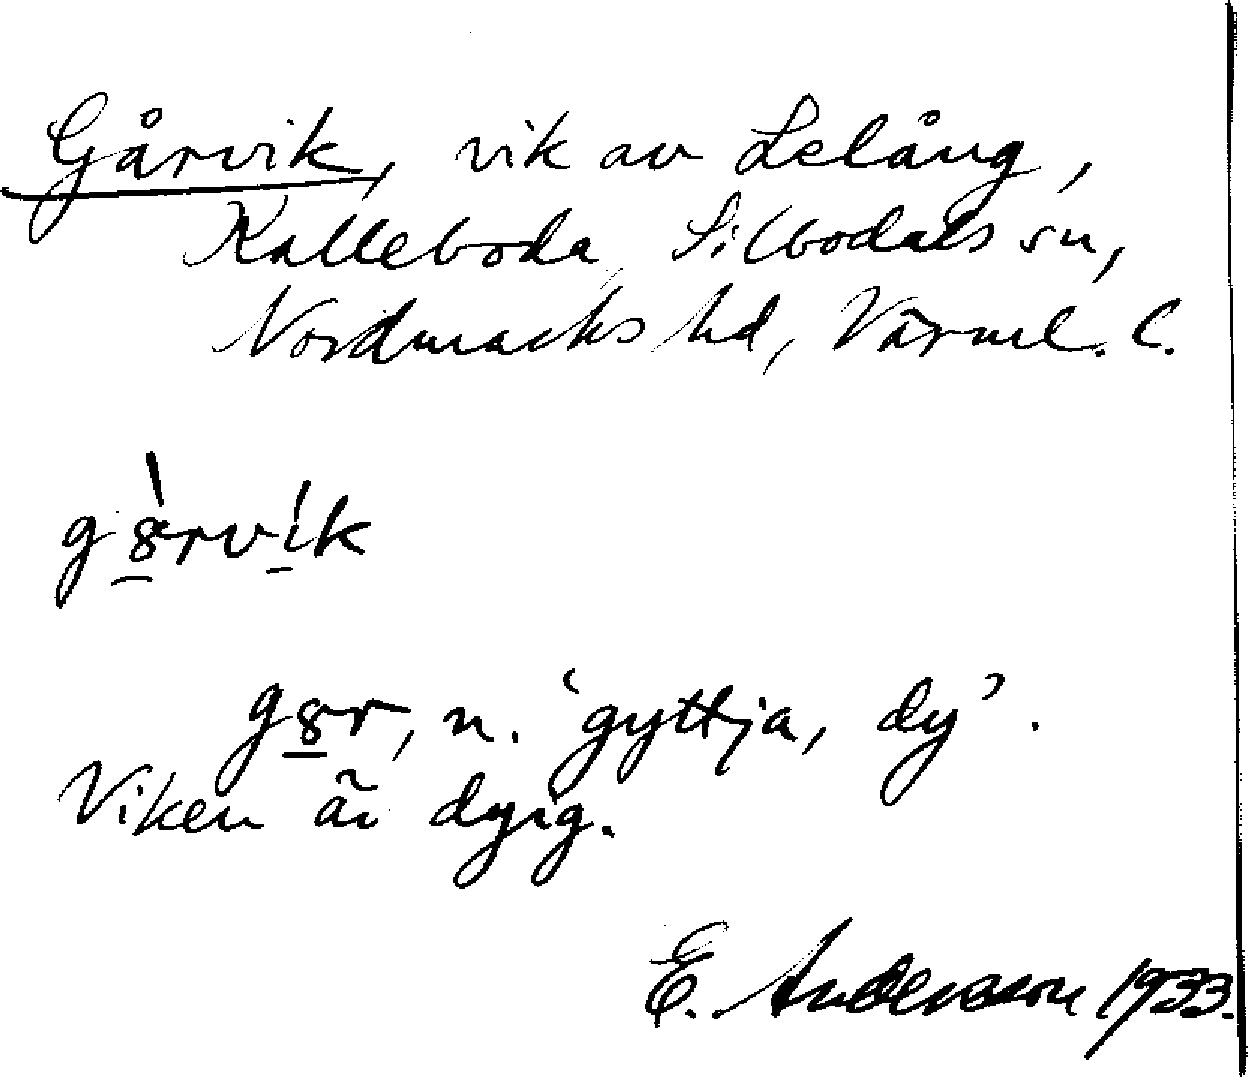 Gårvik, vik av Lelång,
Kalleboda, Silbodals sn,
Nordmarks hd, Värml. l.
g8̠̀rví̠k
g8̠r, n. ‘gyttja, dy’.
Viken är dyig.
E. Andersson 1933.